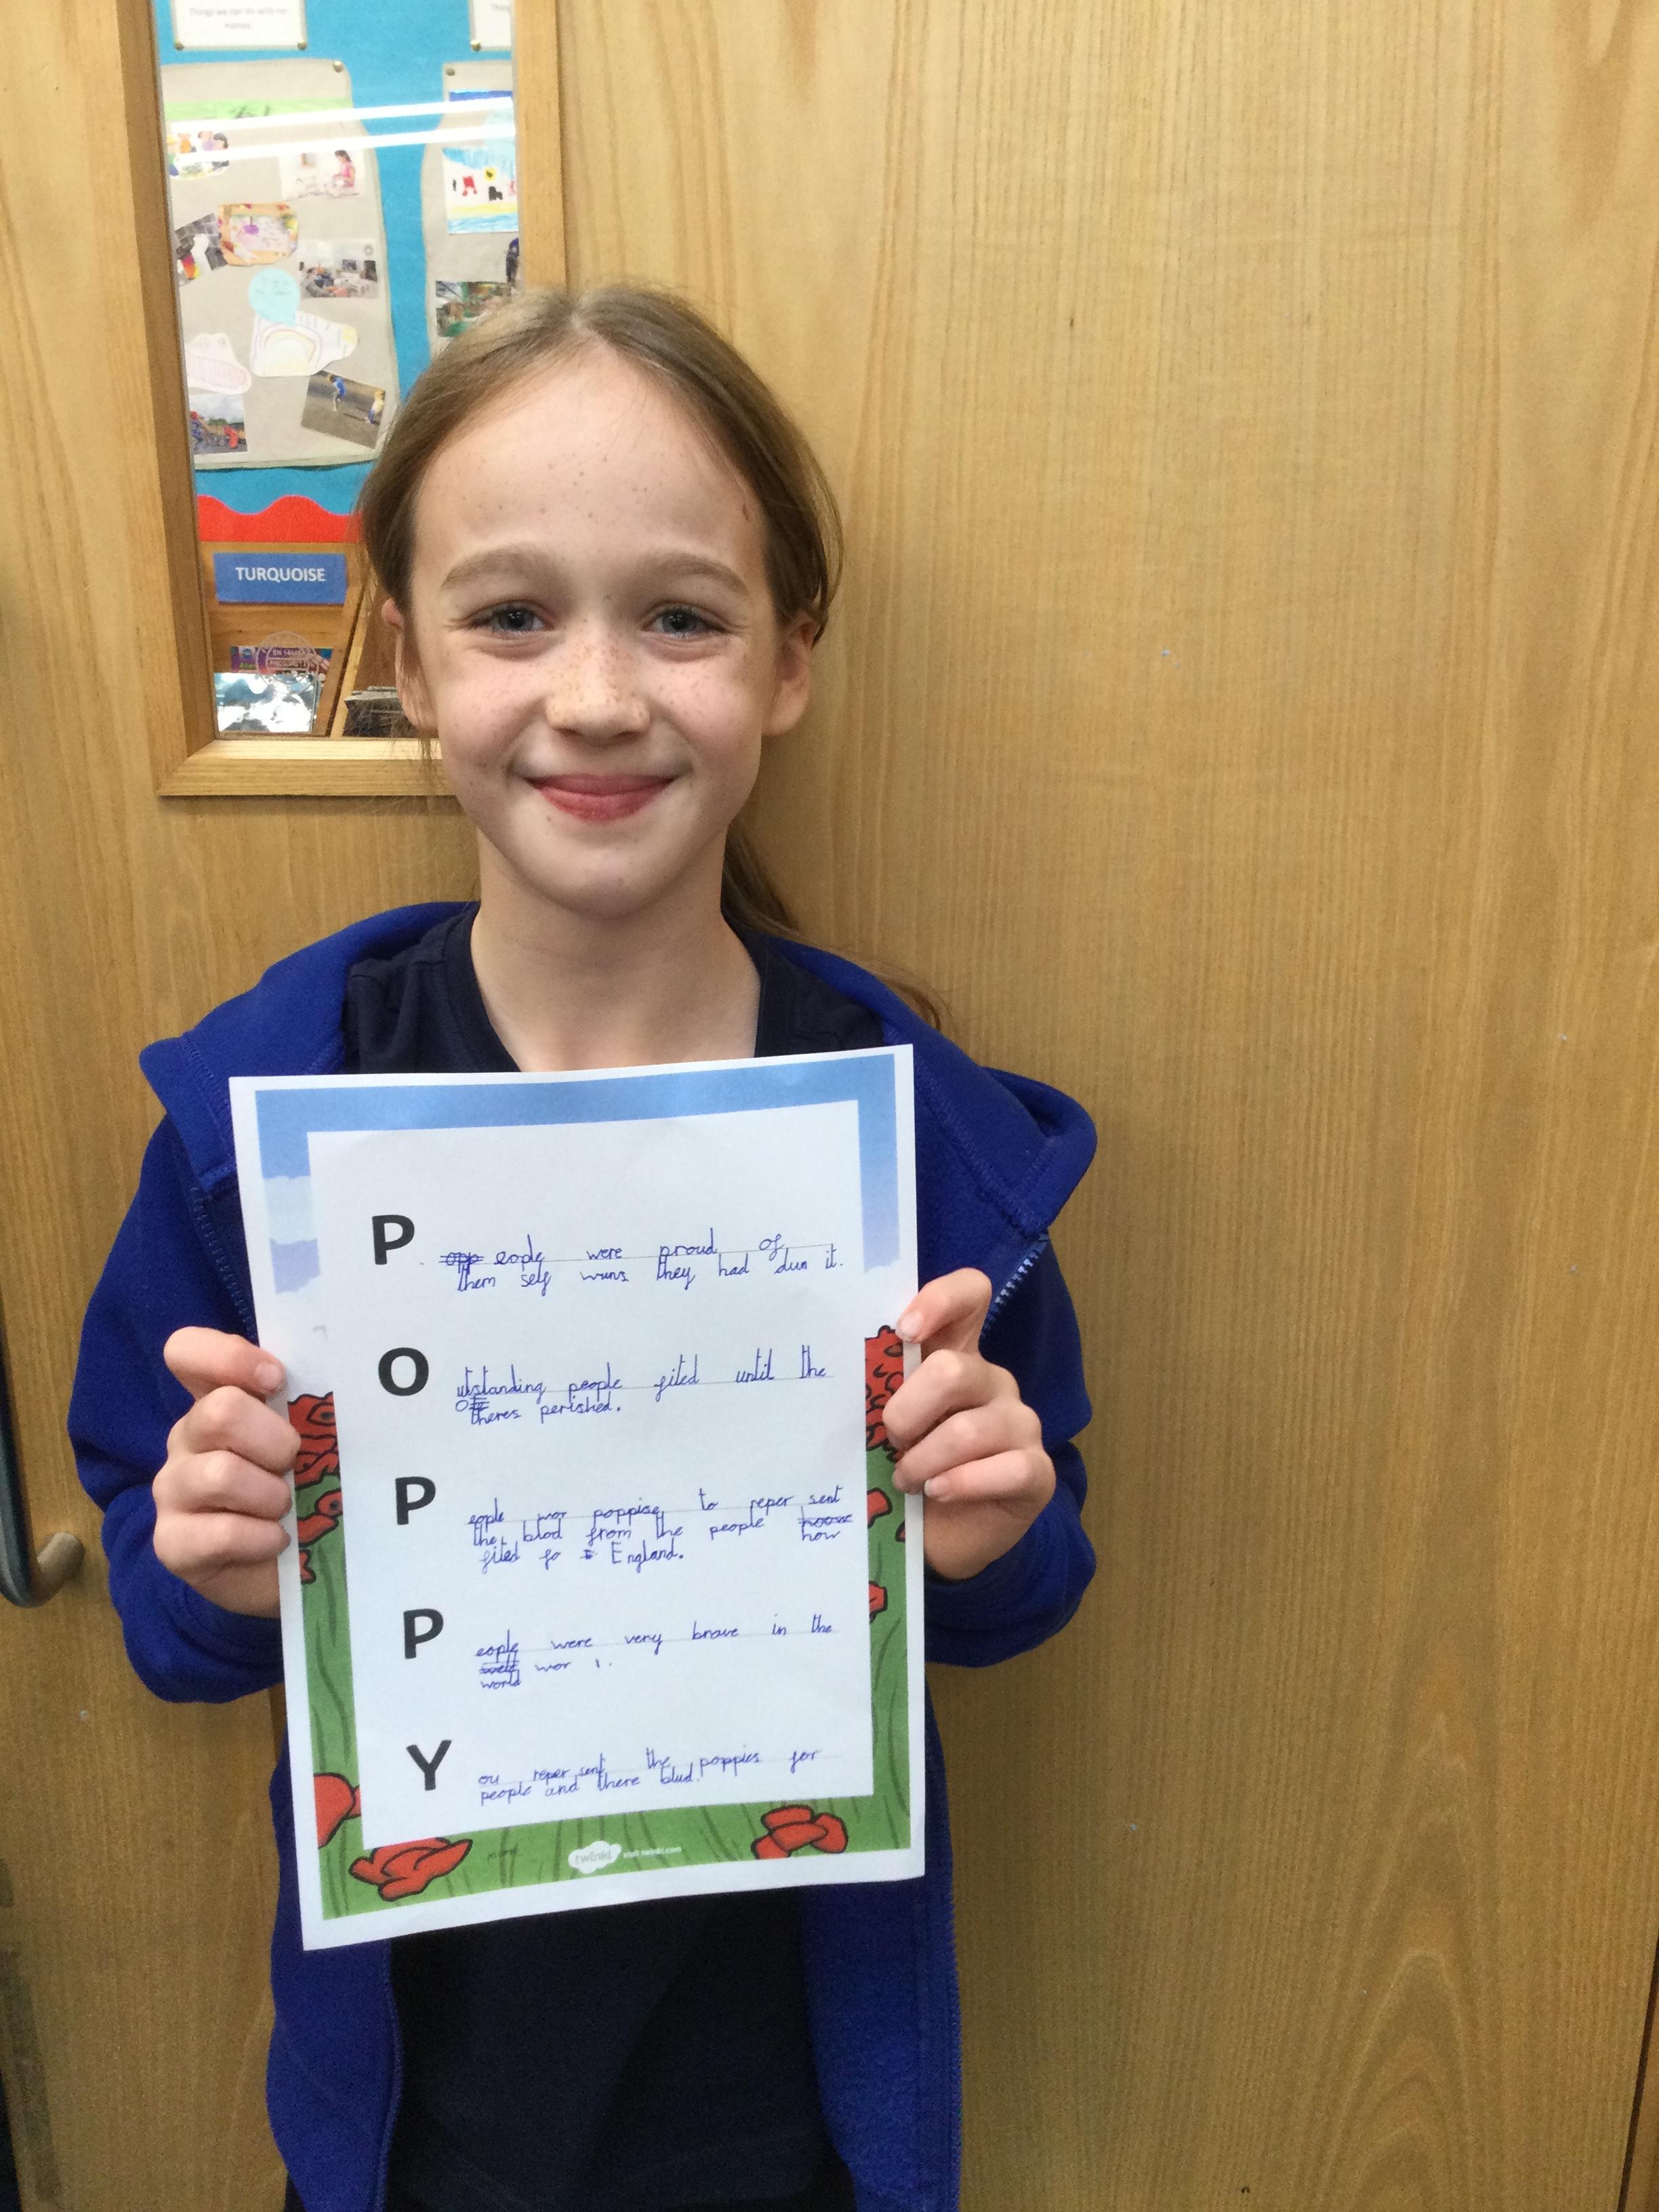 Things we can do with no
money
TURQUOISE
P eople were proud of
them self wuns they had dun it.
O utstanding people fited until the
otheres perished.
P eople wor poppise to reper sent
the blod from the people how
fited fo England.
P eople were very brave in the
world wor 1.
Y ou reper sent the poppies for
people and there blud.
twinkl visit twinkl.com